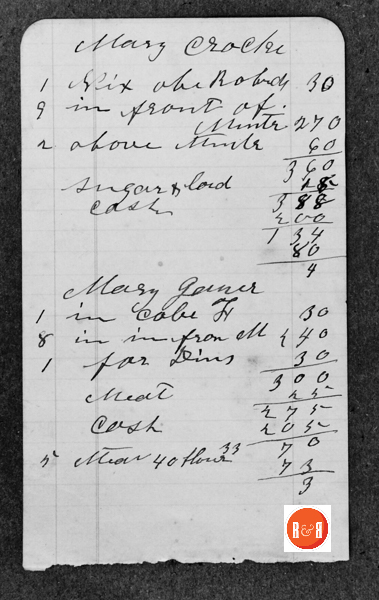 Mary Crocke
1 Nix abe Robards 30
9 in front of.
Minte 270
2 above Minte 60
360
Sugar & lard
Cash 388
200
134
80
4
Mary Gainer
1 in Cobe H 30
8 in in fron M 240
1 for Dins 30
300
Meat 25
275
Cash 205
70
5 Meat 40 flour 33 73
3
R&R